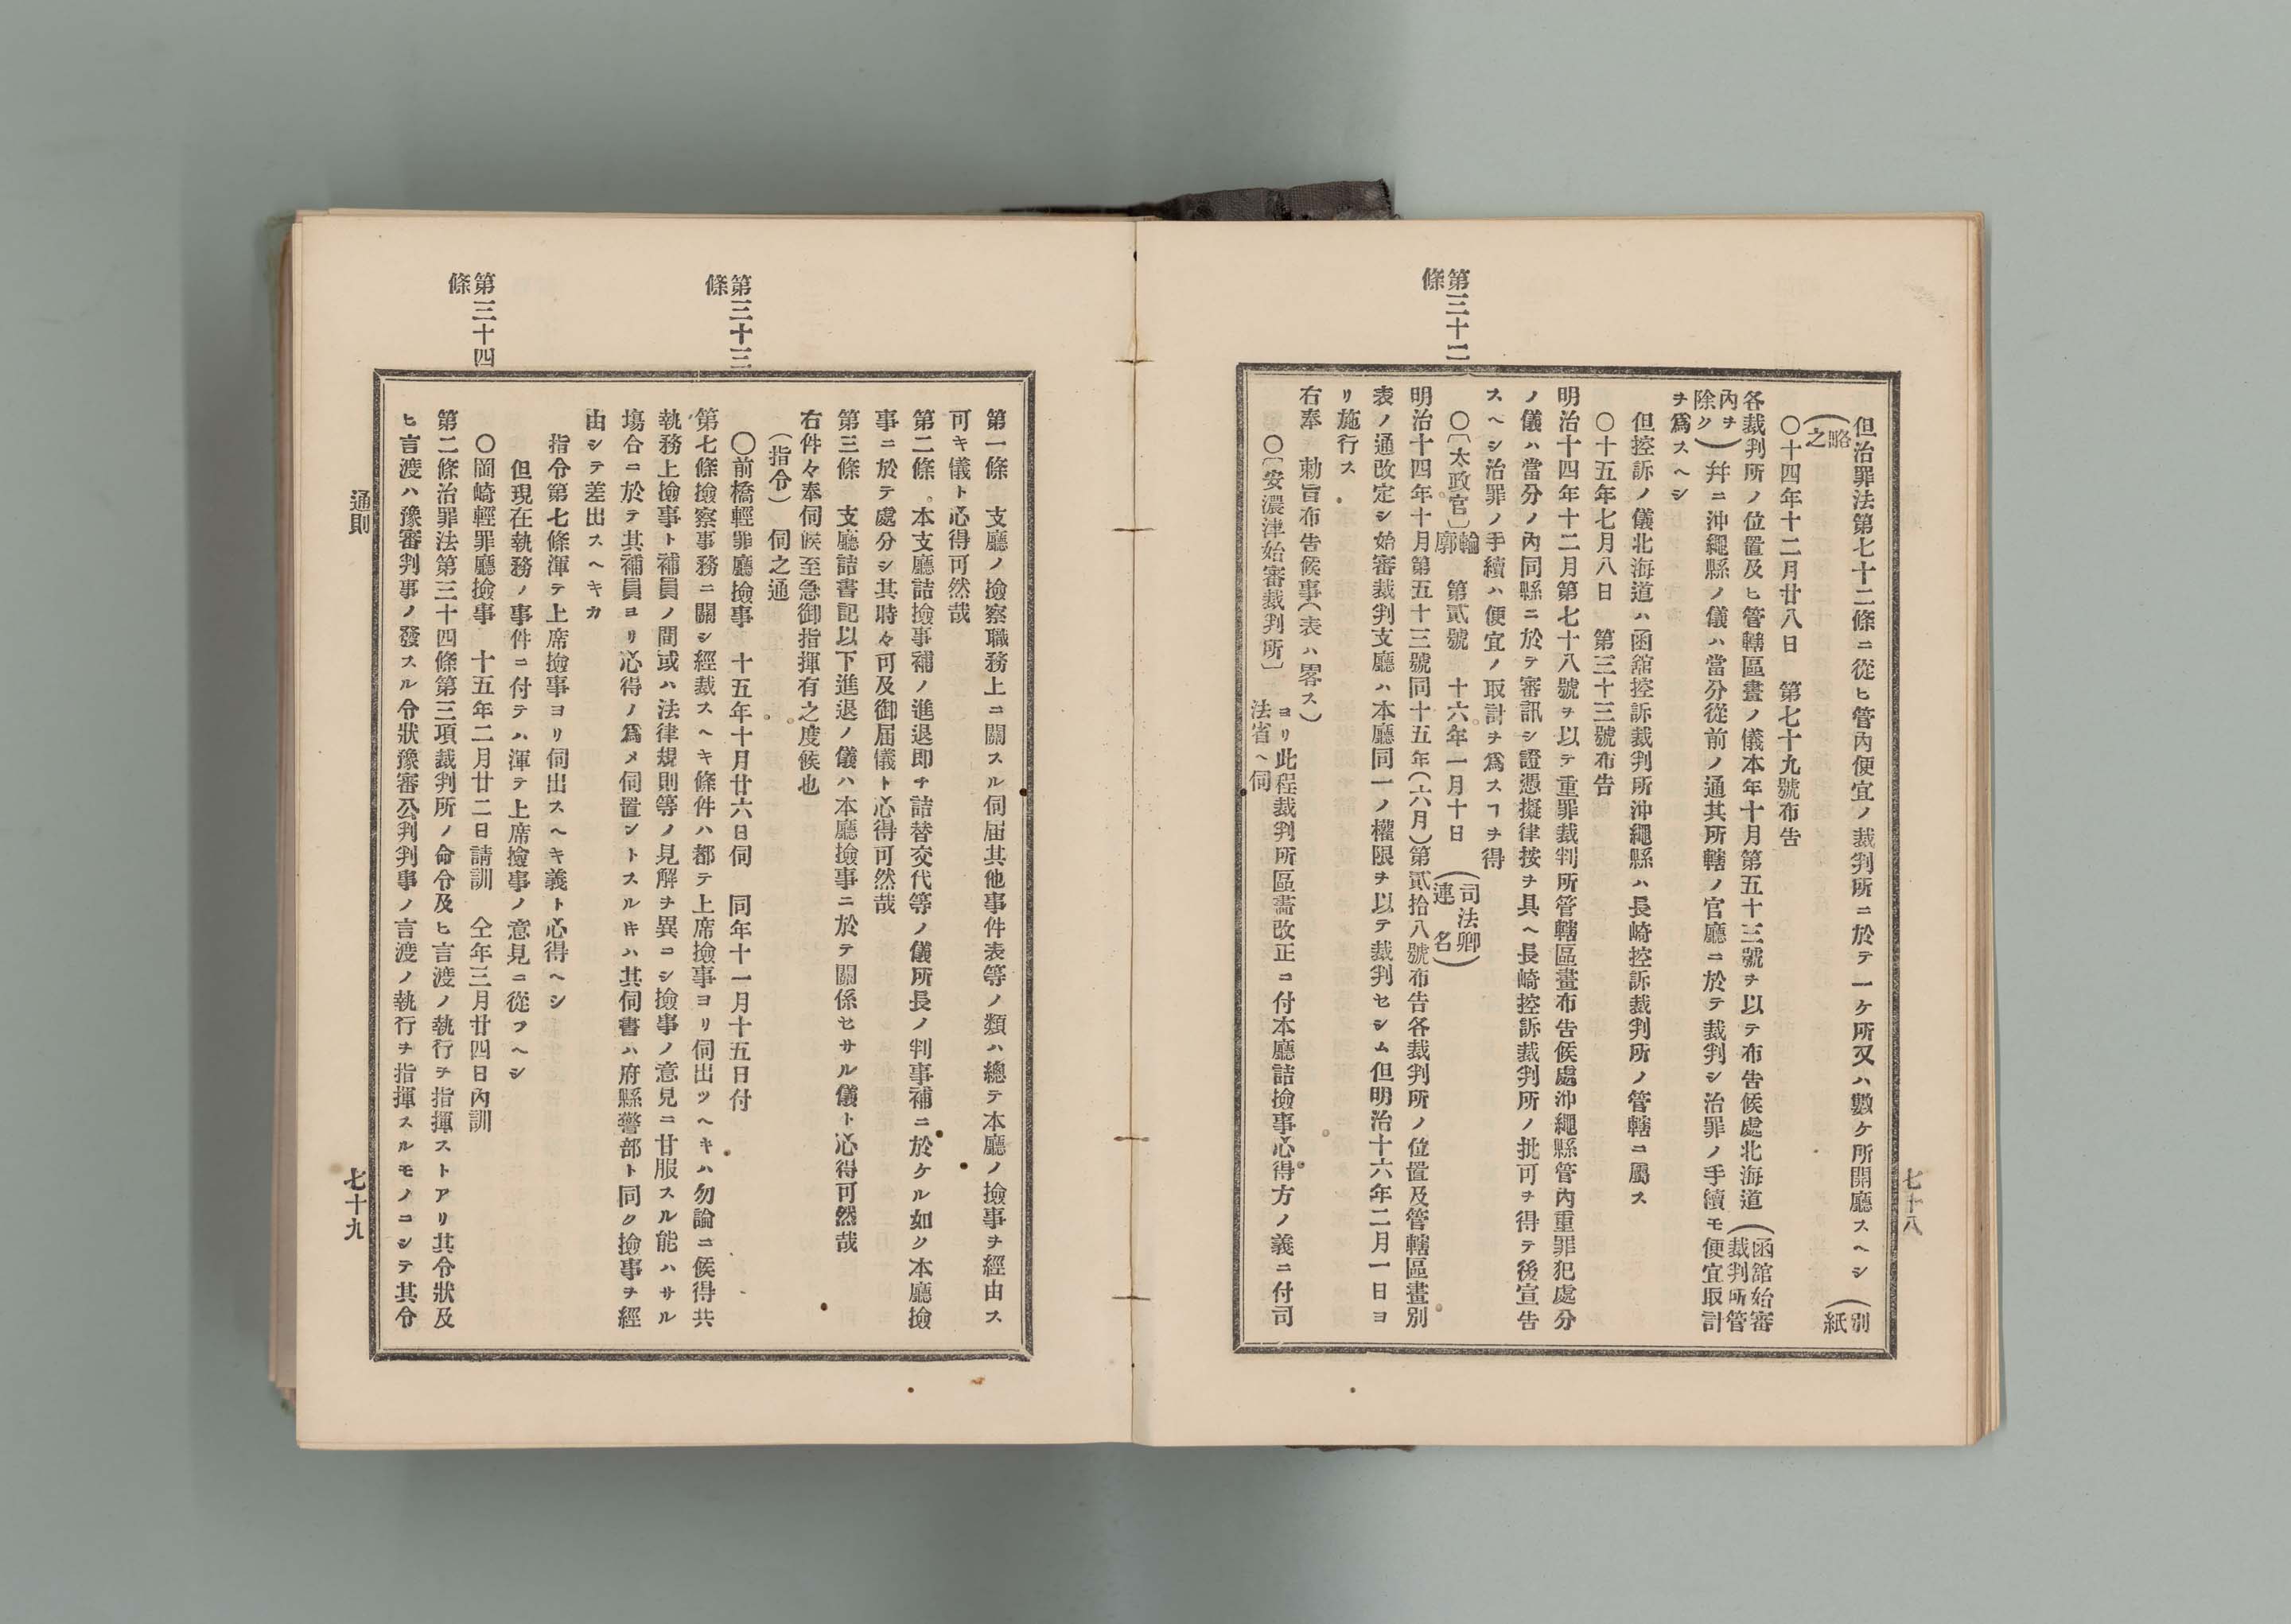 七十八
第三十二
條
但治罪法第七十二條ニ從ヒ管內便宜ノ裁判所ニ於テ一ケ所又ハ數ケ所開廳スヘシ（別紙
略之）
〇十四年十二月廿八日　第七十九號布告
各裁判所ノ位置及ヒ管轄區畫ノ儀本年十月第五十三號ヲ以テ布告候處北海道（函舘始審裁判所管
內ヲ除ク）幷ニ沖繩縣ノ儀ハ當分從前ノ通其所轄ノ官廳ニ於テ裁判シ治罪ノ手續モ便宜取計
ヲ爲スヘシ
但控訴ノ儀北海道ハ函舘控訴裁判所沖繩縣ハ長崎控訴裁判所ノ管轄ニ屬ス
〇十五年七月八日　第三十三號布告
明治十四年十二月第七十八號ヲ以テ重罪裁判所管轄區畫布告候處沖繩縣管內重罪犯處分
ノ儀ハ當分ノ內同縣ニ於テ審訊シ證憑擬律按ヲ具ヘ長崎控訴裁判所ノ批可ヲ得テ後宣告
スヘシ治罪ノ手續ハ便宜ノ取計ヲ爲スヿヲ得
〇〔太政官〕輪廓　第貳號　十六年一月十日　（司法卿連名）
明治十四年十月第五十三號同十五年（六月）第貳拾八號布告各裁判所ノ位置及管轄區畫別
表ノ通改定シ始審裁判支廳ハ本廳同一ノ權限ヲ以テ裁判セシム但明治十六年二月一日ヨ
リ施行ス
右奉　勅旨布告候事（表ハ畧ス）
〇〔安濃津始審裁判所〕ヨリ此程裁判所區畵改正ニ付本廳詰撿事心得方ノ義ニ付司
法省ヘ伺
第三十三
條
第三十四
條
第一條　支廳ノ撿察職務上ニ關スル伺届其他事件表等ノ類ハ總テ本廳ノ撿事ヲ經由ス
可キ儀ト心得可然哉
第二條　本支廳詰撿事補ノ進退即チ詰替交代等ノ儀所長ノ判事補ニ於ケル如ク本廳撿
事ニ於テ處分シ其時々可及御届儀ト心得可然哉
第三條　支廳詰書記以下進退ノ儀ハ本廳撿事ニ於テ關係セサル儀ト心得可然哉
右件々奉伺候至急御指揮有之度候也
（指令）　伺之通
〇前橋輕罪廳撿事　十五年十月廿六日伺　同年十一月十五日付
第七條撿察事務ニ關シ經裁スヘキ條件ハ都テ上席撿事ヨリ伺出ツヘキハ勿論ニ候得共
執務上撿事ト補員ノ間或ハ法律規則等ノ見解ヲ異ニシ撿事ノ意見ニ甘服スル能ハサル
塲合ニ於テ其補員ヨリ心得ノ爲メ伺置ントスルキハ其伺書ハ府縣警部ト同ク撿事ヲ經
由シテ差出スヘキカ
指令第七條渾テ上席撿事ヨリ伺出スヘキ義ト心得ヘシ
但現在執務ノ事件ニ付テハ渾テ上席撿事ノ意見ニ從フヘシ
〇岡崎輕罪廳撿事　十五年二月廿二日請訓　仝年三月廿四日內訓
第二條治罪法第三十四條第三項裁判所ノ命令及ヒ言渡ノ執行ヲ指揮ストアリ其令狀及
ヒ言渡ハ豫審判事ノ發スル令狀豫審公判判事ノ言渡ノ執行ヲ指揮スルモノニシテ其令
通則
七十九